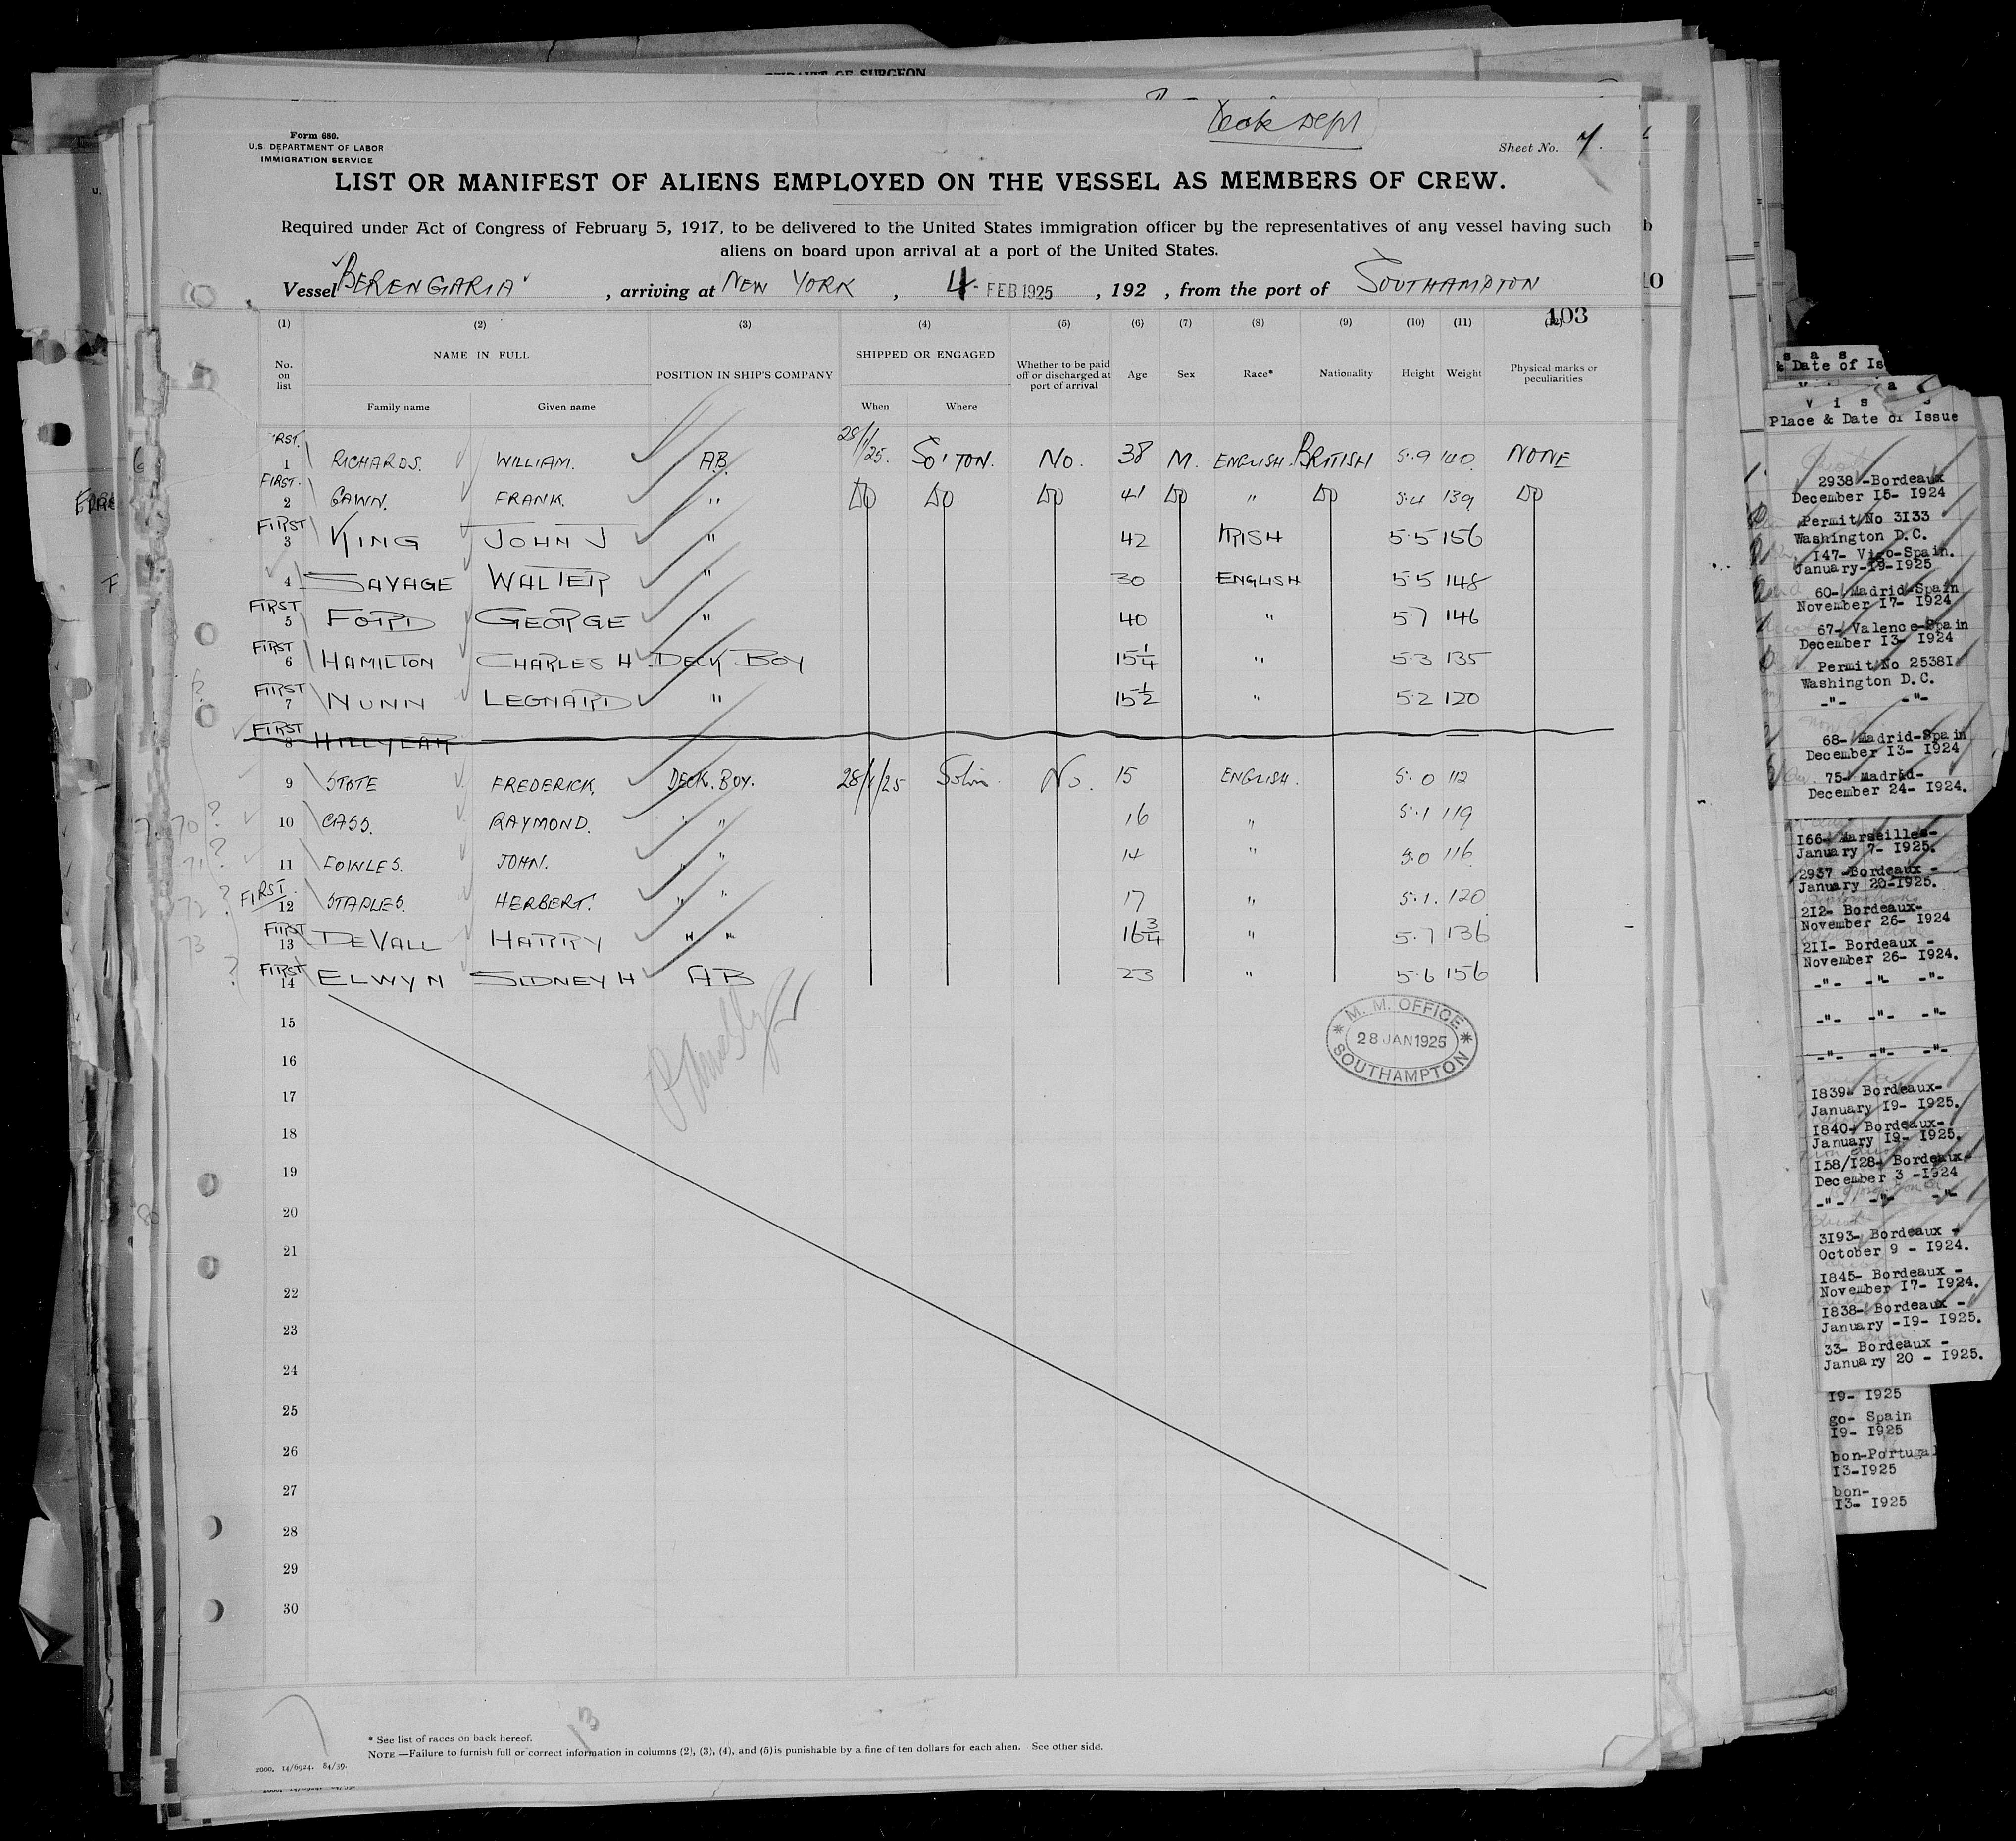 AFFIDAVIT OF SURGEON
Deck Dept
Form 680.
U.S. DEPARTMENT OF LABOR
IMMIGRATION SERVICE
Sheet No. 7.
LIST OR MANIFEST OF ALIENS EMPLOYED ON THE VESSEL AS MEMBERS OF CREW.
Required under Act of Congress of February 5, 1917, to be delivered to the United States immigration officer by the representatives of any vessel having such
aliens on board upon arrival at a port of the United States.
Vessel BERENGARIA , arriving at NEW YORK , 4 FEB 1925 , 192 , from the port of SOUTHAMPTON
103
(1) (2) (3) (4) (5) (6) (7) (8) (9) (10) (11)
No. on list NAME IN FULL POSITION IN SHIP'S COMPANY SHIPPED OR ENGAGED Whether to be paid off or discharged at port of arrival Age Sex Race* Nationality Height Weight Physical marks or peculiarities
Family name Given name When Where
1 RICHARDS. WILLIAM. A.B. 28/1/25. SO'TON. NO. 38 M. ENGLISH. BRITISH 5.9 140 NONE
FIRST. 2 GAWN. FRANK. " DO DO DO 41 DO " DO 5.4 139 DO
FIRST 3 KING JOHN J " 42 IRISH 5.5 156
4 SAVAGE WALTER " 30 ENGLISH 5.5 148
FIRST 5 FORD GEORGE " 40 " 5.7 146
FIRST 6 HAMILTON CHARLES H DECK BOY 15 1/4 " 5.3 135
FIRST 7 NUNN LEONARD " 15 1/2 " 5.2 120
FIRST 8 HILLYEAR
9 STOTE FREDERICK. DECK. BOY. 28/1/25 Soton No. 15 ENGLISH. 5.0 112
10 CASS. RAYMOND. " " 16 " 5.1 119
11 FOWLES. JOHN. " " 14 " 5.0 116
FIRST 12 STAPLES. HERBERT. " " 17 " 5.1. 120
FIRST 13 DEVALL HARRY " " 16 3/4 " 5.7 136
FIRST 14 ELWYN SIDNEY H AB 23 " 5.6 156
15
16
17
18
19
20
21
22
23
24
25
26
27
28
29
30
M. M. OFFICE
28 JAN 1925
SOUTHAMPTON
13
* See list of races on back hereof.
NOTE —Failure to furnish full or correct information in columns (2), (3), (4), and (5) is punishable by a fine of ten dollars for each alien. See other side.
2000. 14/6924. 84/39.
& Date of Is
Place & Date of Issue
2938 -Bordeaux
December 15- 1924
Permit No 3133
Washington D.C.
147- Vigo-Spain.
January-19-1925
60- Madrid-Spain
November 17- 1924
67- Valence-Spain
December 13- 1924
Permit No 25381
Washington D.C.
-"- -"-
68- Madrid-Spain
December 13- 1924
75- Madrid-
December 24- 1924.
166- Marseilles-
January 7- 1925.
2937 -Bordeaux -
January 20-1925.
212- Bordeaux-
November 26- 1924
211- Bordeaux -
November 26- 1924.
-"- -"- -"-
-"- -"- -"-
-"- -"- -"-
1839- Bordeaux-
January 19- 1925.
1840- Bordeaux-
January 19- 1925.
158/128- Bordeaux-
December 3 -1924
-"- -"- -"-
3193- Bordeaux -
October 9 - 1924.
1845- Bordeaux -
November 17- 1924.
1838- Bordeaux -
January -19- 1925.
33- Bordeaux -
January 20 - 1925.
19- 1925
go- Spain
19- 1925
bon-Portugal
13-1925
bon-
13- 1925